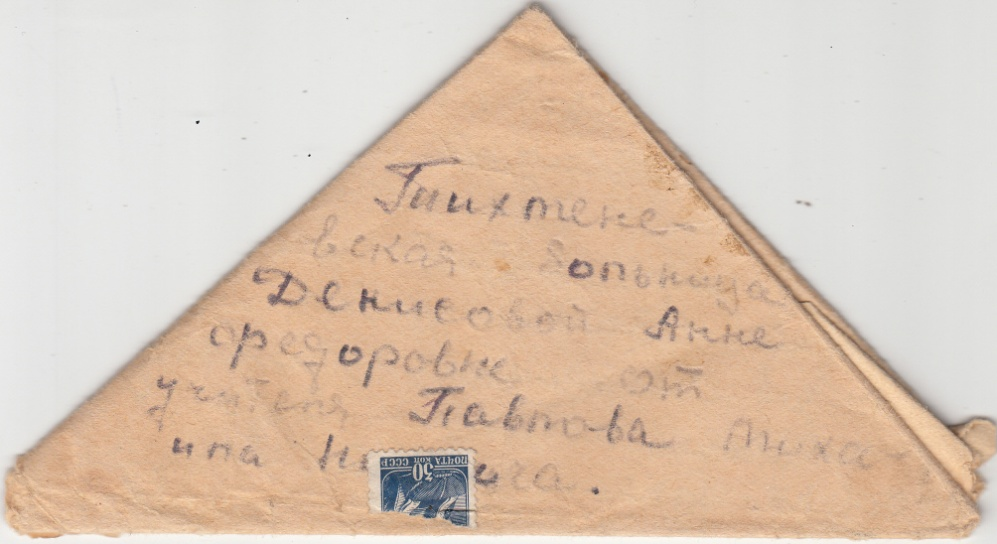 Гпихтене-
вская больница
Денисовой Анне
Федоровне от
учителя Павлова Миха
ила
ПОЧТА 30 КОП СССР